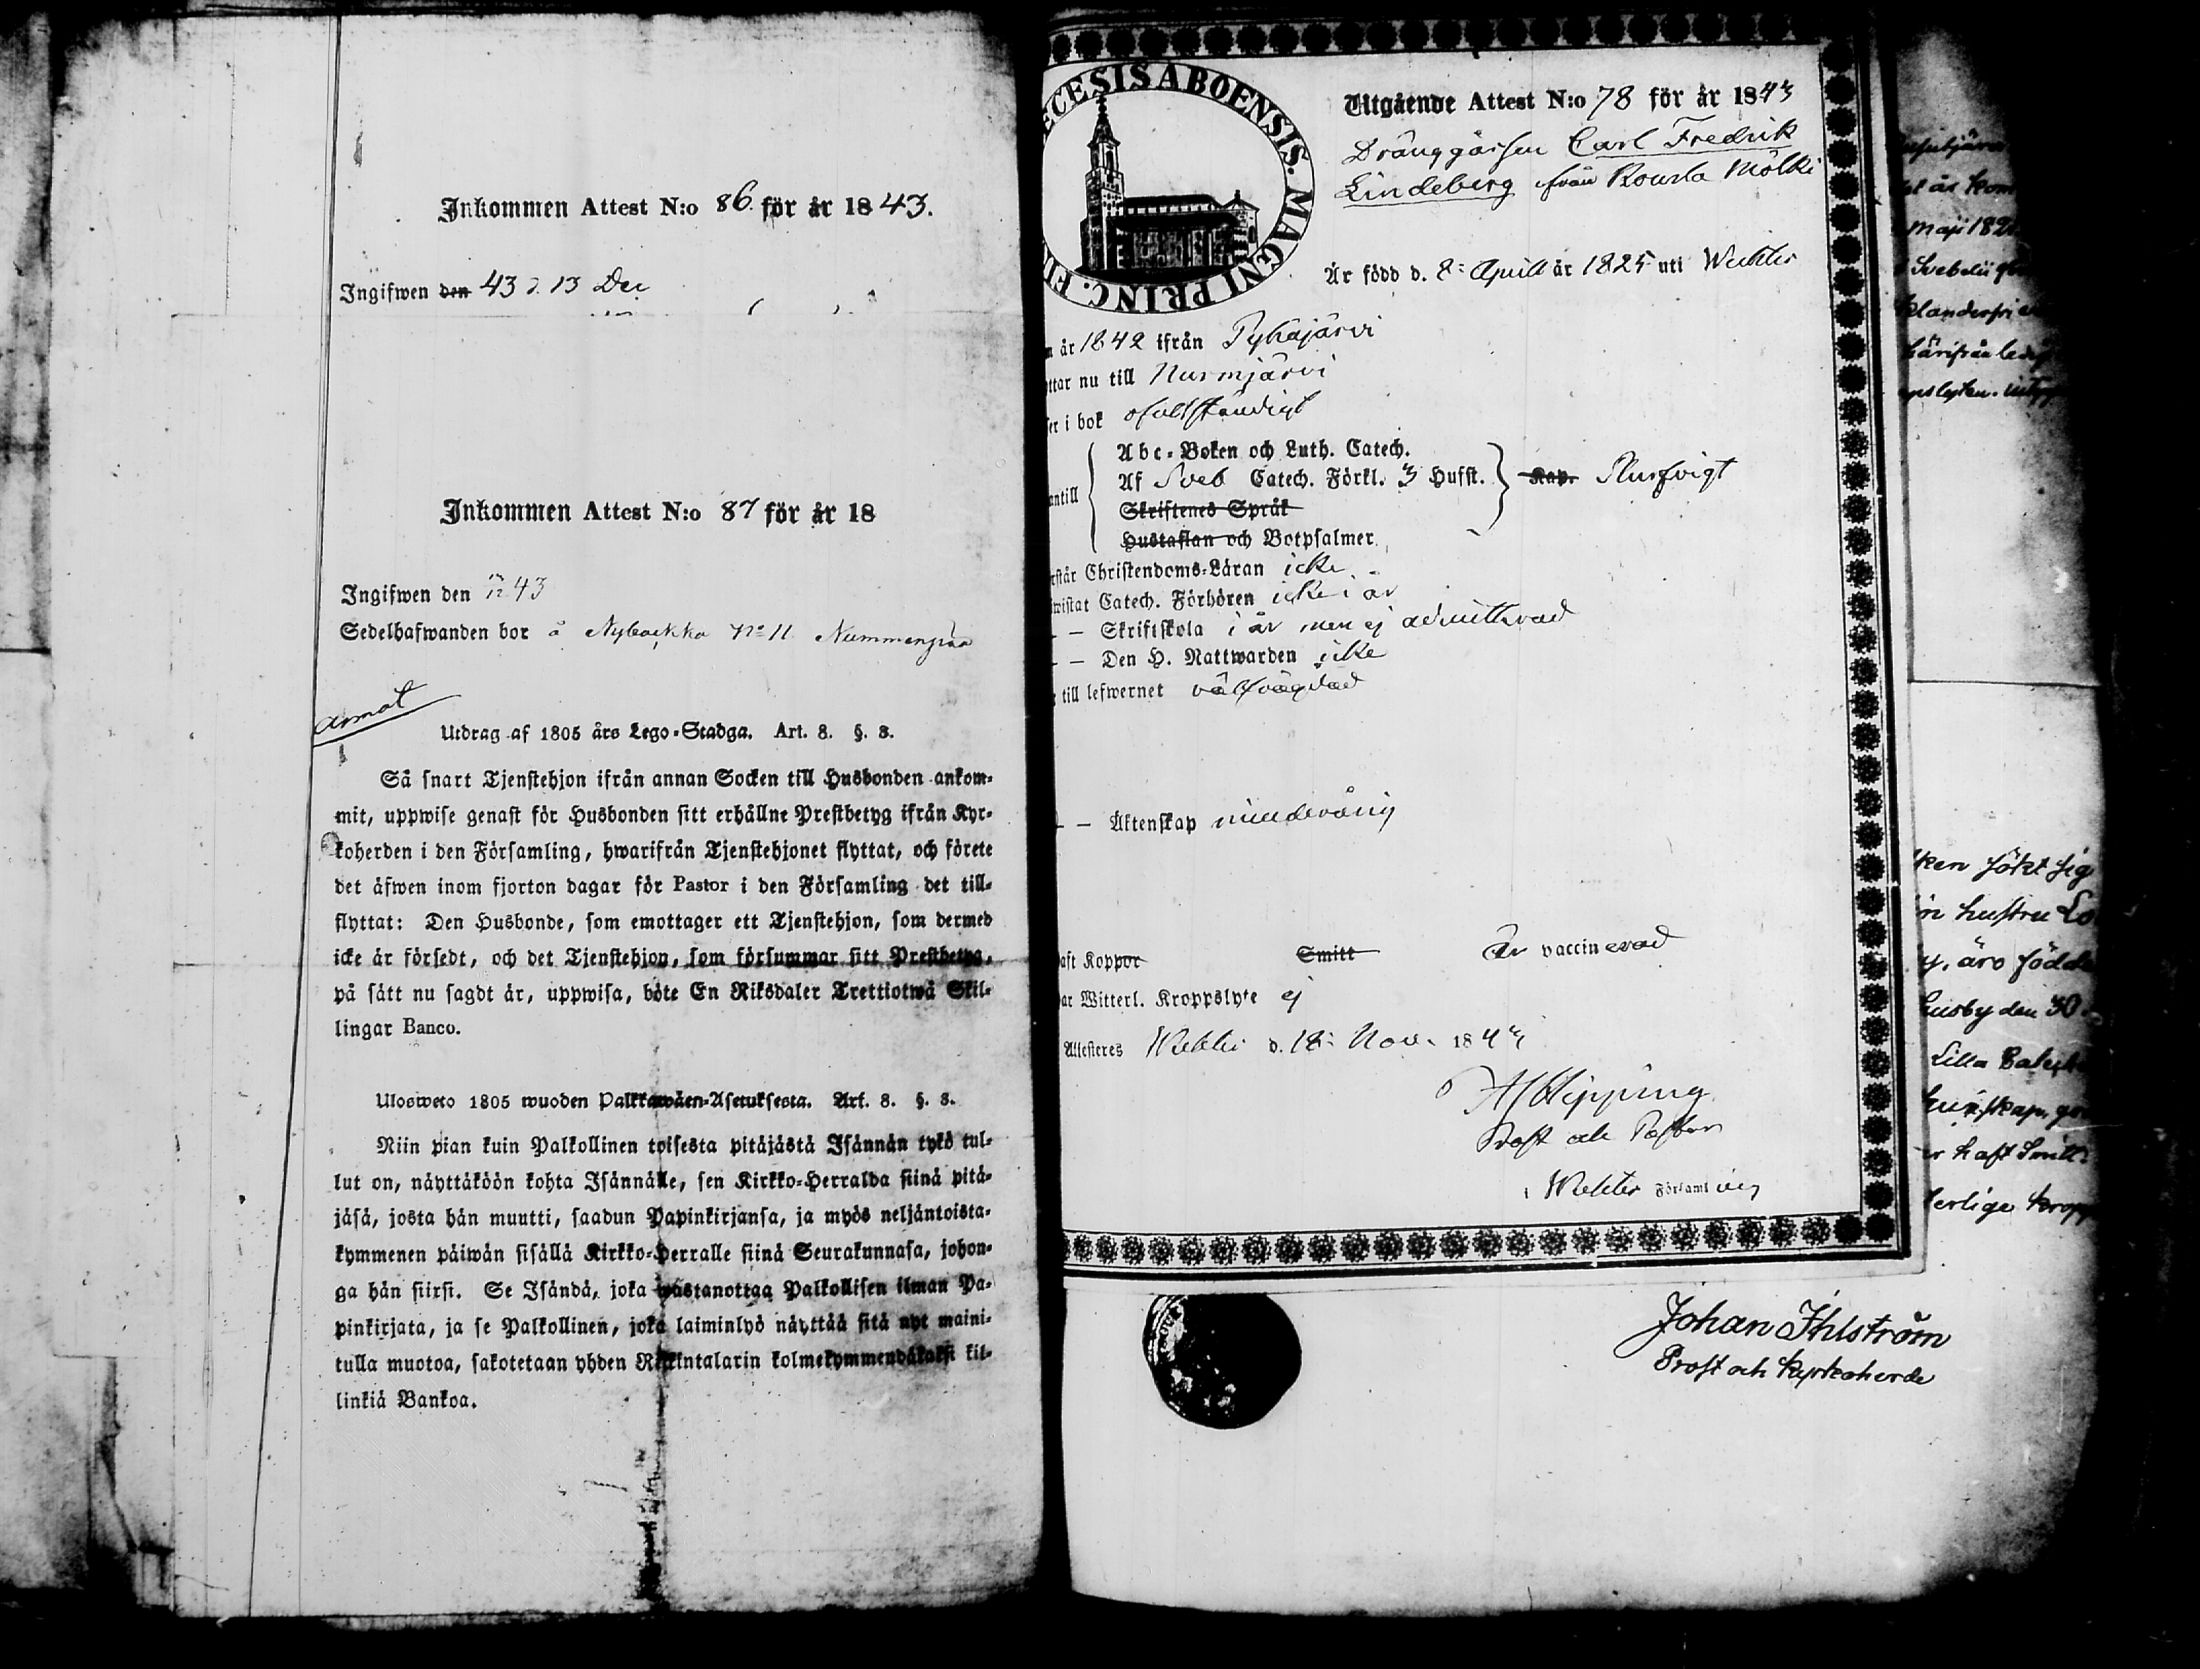 Inkommen Attest N:o 86. för år 1843.
Ingifwen den 43 d. 13 Dec
Inkommen Attest N:o 87 för år 18
Ingifwen den 43
Sedelhafwanden bor å Nybacka No 11
Utdrag af 1805 års Lego-Stadga. Art. 8. §. 8.
Så snart Tjenstehjon ifrån annan Socken till Husbonden ankom-
mit, uppwise genast för Husbonden sitt erhållne Prestbetyg ifrån Kyr-
koherden i den Församling, hwarifrån Tjenstehjonet flyttat, och förete
det äfwen inom fjorton dagar för Pastor i den Församling det till-
flyttat: Den Husbonde, som emottager ett Tjenstehjon, som dermed
icke är försedt, och det Tjenstehjon, som försummar sitt Prestbetyg,
på sätt nu sagdt är, uppwisa, böte En Riksdaler Trettiotwå Skil-
lingar Banco.
Ulosweto 1805 wuoden Palkkawäen-Asetuksesta. Art. 8. §. 8.
Niin pian kuin Palkollinen toisesta pitäjästä Isännän tykö tul-
lut on, näyttäköön kohta Isännälle, sen Kirkko-Herralda siinä pitä-
jäsä, josta hän muutti, saadun Papinkirjansa, ja myös neljäntoista-
kymmenen päiwän sisällä Kirkko-Herralle siinä Seurakunnasa, johon-
ga hän siirsi. Se Isändä, joka wastanottaa Palkollisen ilman Pa-
pinkirjata, ja se Palkollinen, joka laiminlyö näyttää sitä nyt maini-
tulla muotoa, sakotetaan yhden Riikintalarin kolmekymmendäkaksi kil-
linkiä Bankoa.
ECESIS ABOENSIS. MAGNI PRINC. FI
Utgående Attest N:o 78 för år 1843
Drånggåssen Carl Fredrik
Lindeberg ifrån Rousla Mölki
Är född d. 8: April år 1825 uti Wichtis
n år 1842 ifrån Pyhäjärvi
ttar nu till Nurmjärvi
er i bok ofullständigt
antill Abc-Boken och Luth. Catech.
Af Sveb Catech. Förkl. 3 Hufst. Kap.
Skriftenes Språk
Hustaflan och Botpsalmer.
rstår Christendoms-Läran icke
wistat Catech. Förhören icke i år
- – Skriftskola i år men ej admitterad
- – Den H. Nattwarden icke
till lefwernet välfrägdad
- – Äktenskap minderårig
aft Koppor Smitt Är vaccinerad
ar Witterl. Kroppslyte ej
Attesteres Wichtis d. 18: Nov. 1843
Hipping
Prost och Pastor
i Wichtis Församling
Johan Ihlström
Prost och Kyrkoherde
år kom
Maji 182
ken sökt sig
n hustru Lo
y, äro födde
Husby den 30
Lilla
r haft Smitt
terlige kropp